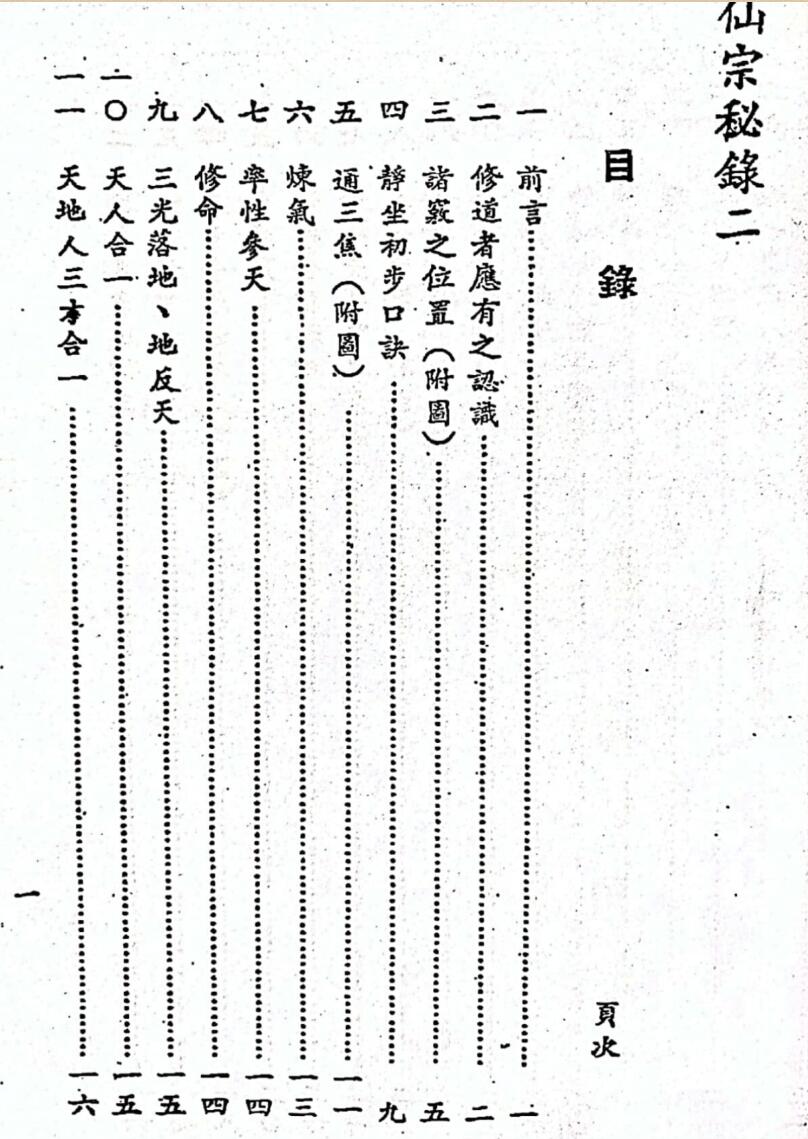 仙宗秘錄二
目錄
頁次
一 前言……一
二 修道者應有之認識……二
三 諸竅之位置(附圖)……五
四 靜坐初步口訣……九
五 通三焦(附圖)……一一
六 煉氣……一三
七 率性參天……一四
八 修命……一四
九 三光落地、地反天……一五
一〇 天人合一……一五
一一 天地人三才合一……一六
一